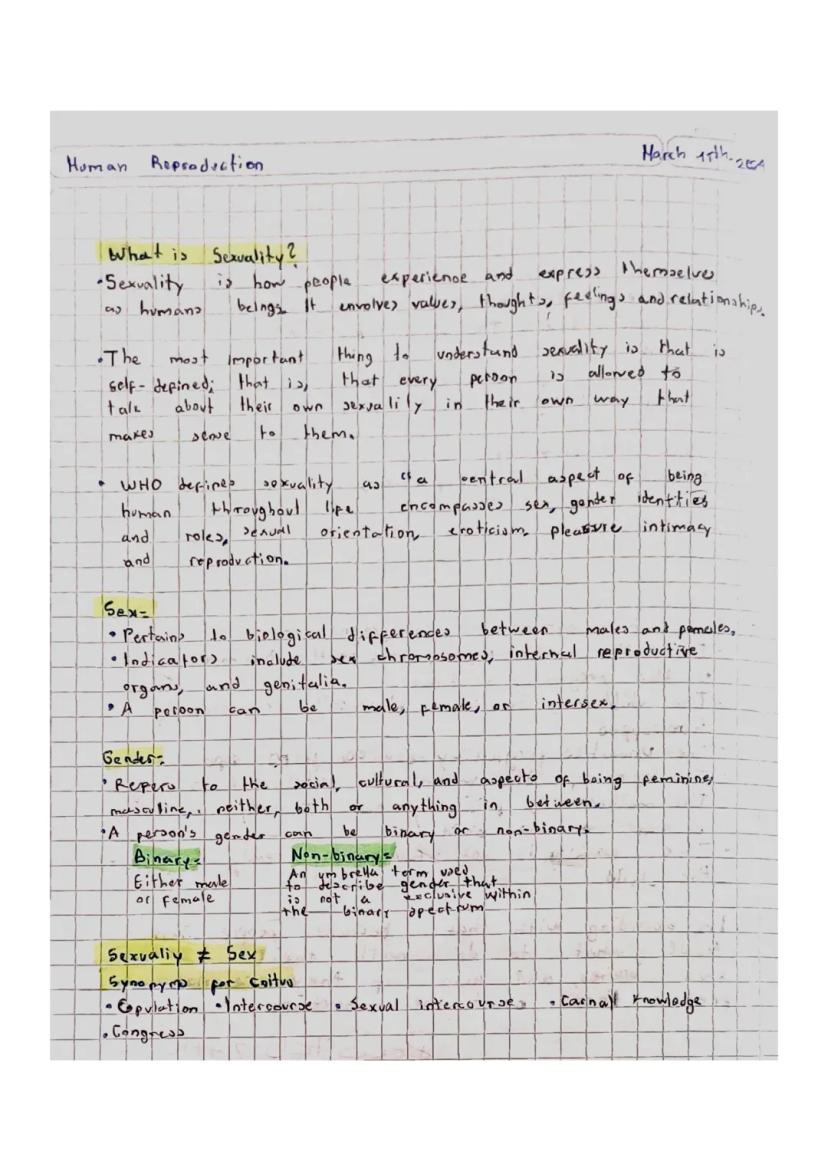 Human Reproduction
March 15th. 2024
What is Sexuality?
•Sexuality is how people experience and express themselves
as humans beings. It envolves values, thoughts, feelings and relationships.
•The most important thing to understand sexuality is that is
self-defined; that is, that every person is allowed to
talk about their own sexuality in their own way that
makes sense to them.
• WHO defines sexuality as "a central aspect of being
human throughout life encompasses sex, gender identities
and roles, sexual orientation, eroticism, pleasure intimacy
and reproduction.
Sex=
• Pertains to biological differences between males and females,
• Indicators include sex chromosomes, internal reproductive
organs, and genitalia.
• A person can be male, female, or intersex.
Gender=
• Refers to the social, cultural, and aspects of being feminine,
masculine, neither, both or anything in between.
•A person's gender can be binary or non-binary.
Binary=
Either male
or female
Non-binary=
An umbrella term used
to describe gender that
is not a exclusive within
the binary spectrum
Sexualiy ≠ Sex
Synonyms for Coitus
• Copulation • Intercourse • Sexual intercourse • Carnal knowledge
• Congress